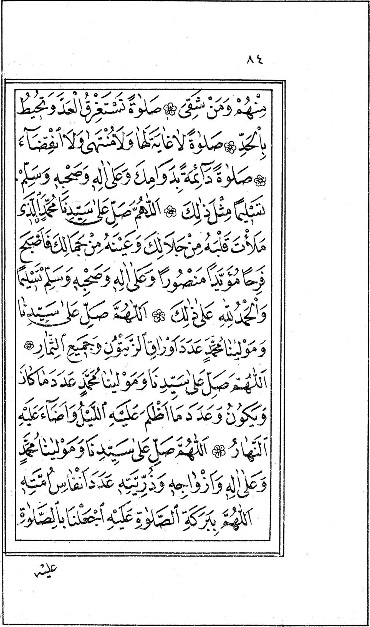 ٨٤
مِنْهُمْ وَمَنْ شَقِيَ ۞ صَلٰوةً تَسْتَغْرِقُ الْعَدَّ وَتُحِيْطُ
بِالْحَدِّ ۞ صَلٰوةً لَا غَايَةَ لَهَا وَلَا مُنْتَهٰى وَلَا انْقِضَآءَ
۞ صَلٰوةً دَآئِمَةً بِدَوَامِكَ وَعَلٰى اٰلِهٖ وَصَحْبِهٖ وَسَلِّمْ
تَسْلِيْمًا مِثْلَ ذٰلِكَ ۞ اَللّٰهُمَّ صَلِّ عَلٰى سَيِّدِنَا مُحَمَّدِ ࣙالَّذِيْ
مَلَأْتَ قَلْبَهٗ مِنْ جَلَالِكَ وَعَيْنَهٗ مِنْ جَمَالِكَ فَاَصْبَحَ
فَرِحًا مُؤَيَّدًا مَنْصُوْرًا وَعَلٰى اٰلِهٖ وَصَحْبِهٖ وَسَلِّمْ تَسْلِيْمًا
وَالْحَمْدُ لِلّٰهِ عَلٰى ذٰلِكَ ۞ اَللّٰهُمَّ صَلِّ عَلٰى سَيِّدِنَا
وَمَوْلٰينَا مُحَمَّدٍ عَدَدَ اَوْرَاقِ الزَّيْتُوْنِ وَجَمِيْعِ الثِّمَارِ ۞
اَللّٰهُمَّ صَلِّ عَلٰى سَيِّدِنَا وَمَوْلٰينَا مُحَمَّدٍ عَدَدَ مَا كَانَ
وَيَكُوْنُ وَعَدَدَ مَا اَظْلَمَ عَلَيْهِ اللَّيْلُ وَاَضَآءَ عَلَيْهِ
النَّهَارُ ۞ اَللّٰهُمَّ صَلِّ عَلٰى سَيِّدِنَا وَمَوْلٰينَا مُحَمَّدٍ
وَعَلٰى اٰلِهٖ وَاَزْوَاجِهٖ وَذُرِّيَّتِهٖ عَدَدَ اَنْفَاسِ اُمَّتِهٖ
اَللّٰهُمَّ بِبَرَكَةِ الصَّلٰوةِ عَلَيْهِ اجْعَلْنَا بِالصَّلٰوةِ
عَلَيْهِ